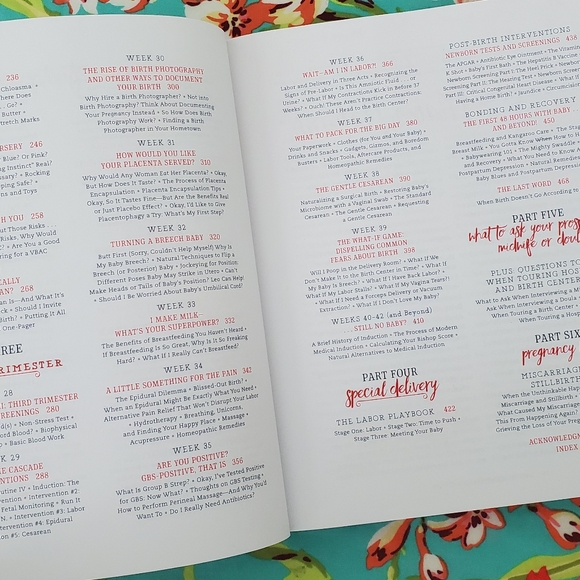 236
Chloasma •
There Does
. . Go? •
Butter •
Stretch Marks
246
Blue! Or Pink?
Instinct Real?
• Rocking
Safe? •
and Try
258
But Those Risks . . .
• Are You a Good
for a VBAC
268
Should I Invite
Birth? • Putting It All
One-Pager
28
THIRD TRIMESTER
280
Non-Stress Test •
Blood? • Biophysical
• Basic Blood Work
29
CASCADE
288
Routine IV • Induction: The
Intervention #2:
Fetal Monitoring • Run It
Intervention #3: Labor
Intervention #4: Epidural
#5: Cesarean
WEEK 30
THE RISE OF BIRTH PHOTOGRAPHY
AND OTHER WAYS TO DOCUMENT
YOUR BIRTH 300
Why Hire a Birth Photographer? • Not into
Birth Photography? Think About Documenting
Your Pregnancy Instead • So How Does Birth
Photography Work? • Finding a Birth
Photographer in Your Hometown
WEEK 31
HOW WOULD YOU LIKE
YOUR PLACENTA SERVED? 310
Why Would Any Woman Eat Her Placenta? • Okay,
But How Does It Taste? • The Process of Placenta
Encapsulation • Placenta Encapsulation Tips •
Okay, So It Tastes Fine—But Are the Benefits Real
or Just Placebo Effect? • Okay, I'd Like to Give
Placentophagy a Try. What's My First Step?
WEEK 32
TURNING A BREECH BABY 320
Butt First (Sorry, Couldn't Help Myself) Why Is
My Baby Breech? • Natural Techniques to Flip a
Breech (or Posterior) Baby • Jockeying for Position:
Different Poses Baby May Strike in Utero • Can't
Make Heads or Tails of Baby's Position? Leo Can Help!
• Should I Be Worried About Baby's Umbilical Cord?
WEEK 33
I MAKE MILK—
WHAT'S YOUR SUPERPOWER? 332
The Benefits of Breastfeeding You Haven't Heard •
If Breastfeeding Is So Great, Why Is It So Freaking
Hard? • What If I Really Can't Breastfeed?
WEEK 34
A LITTLE SOMETHING FOR THE PAIN 342
The Epidural Dilemma • Blissed-Out Birth? •
When an Epidural Might Be Exactly What You Need •
Alternative Pain Relief That Won't Disrupt Your Labor
• Hydrotherapy • Breathing, Unicorns,
and Finding Your Happy Place • Massage •
Acupressure • Homeopathic Remedies
WEEK 35
ARE YOU POSITIVE?
GBS-POSITIVE, THAT IS 356
What Is Group B Strep? • Okay, I've Tested Positive
for GBS: Now What? • Thoughts on GBS Testing •
How to Perform Perineal Massage—And Why You'd
Want To • Do I Really Need Antibiotics?
WEEK 36
WAIT—AM I IN LABOR?! 366
Labor and Delivery in Three Acts • Recognizing the
Signs of Pre-Labor • Is This Amniotic Fluid . . . or
Urine? • What If My Contractions Kick in Before 37
Weeks? • Ouch! These Aren't Practice Contractions:
When Should I Head to the Birth Center?
WEEK 37
WHAT TO PACK FOR THE BIG DAY 380
Your Paperwork • Clothes (for You and Your Baby) •
Drinks and Snacks • Gadgets, Gizmos, and Boredom
Busters • Labor Tools, Aftercare Products, and
Homeopathic Remedies
WEEK 38
THE GENTLE CESAREAN 390
Naturalizing a Surgical Birth • Restoring Baby's
Microbiome with a Vaginal Swab • The Standard
Cesarean • The Gentle Cesarean • Requesting
a Gentle Cesarean
WEEK 39
THE WHAT-IF GAME:
DISPELLING COMMON
FEARS ABOUT BIRTH 398
Will I Poop in the Delivery Room? • What If We
Don't Make It to the Birth Center in Time? • What If
My Baby Is Breech? • What If I Have Back Labor? •
What If My Labor Stalls? • What If My Vagina Tears? •
What If I Need Forceps Delivery or Vacuum
Extraction? • What If I Don't Love My Baby?
WEEKS 40-42 (and Beyond)
. . . STILL NO BABY? 410
A Brief History of Induction • The Process of Modern
Medical Induction • Calculating Your Bishop Score •
Natural Alternatives to Medical Induction
PART FOUR
special delivery
THE LABOR PLAYBOOK 422
Stage One: Labor • Stage Two: Time to Push •
Stage Three: Meeting Your Baby
POST-BIRTH INTERVENTIONS
NEWBORN TESTS AND SCREENINGS 438
The APGAR • Antibiotic Eye Ointment • The Vitamin
K Shot • Baby's First Bath • The Hepatitis B Vaccine
Newborn Screening Part I: The Heel Prick • Newborn
Screening Part II: The Hearing Test • Newborn Screening
Part III: Critical Congenital Heart Disease • What If
Having a Home Birth? • Jaundice • Circumcision
BONDING AND RECOVERY
THE FIRST 48 HOURS WITH BABY
AND BEYOND! 450
Breastfeeding and Kangaroo Care • The
Breast Milk • You Gotta Know
• Babywearing 101 • The Mighty Swaddle
and Recovery • What You Need to Know
Postpartum Depression • Natural
Baby Blues and Postpartum Depression
THE LAST WORD 468
When Birth Doesn't Go According to
PART FIVE
what to ask your
midwife or
PLUS: QUESTIONS TO
WHEN TOURING
AND BIRTH CENTER
What to Ask When Interviewing a
When Interviewing a Doula
When Touring a Birth
When Touring a
PART SIX
pregnancy
MISCARRIAGE
STILLBIRTH
When the Unthinkable
Miscarriage and Stillbirth •
What Caused My Miscarriage
This From Happening Again?
Grieving the Loss of Your
INDEX